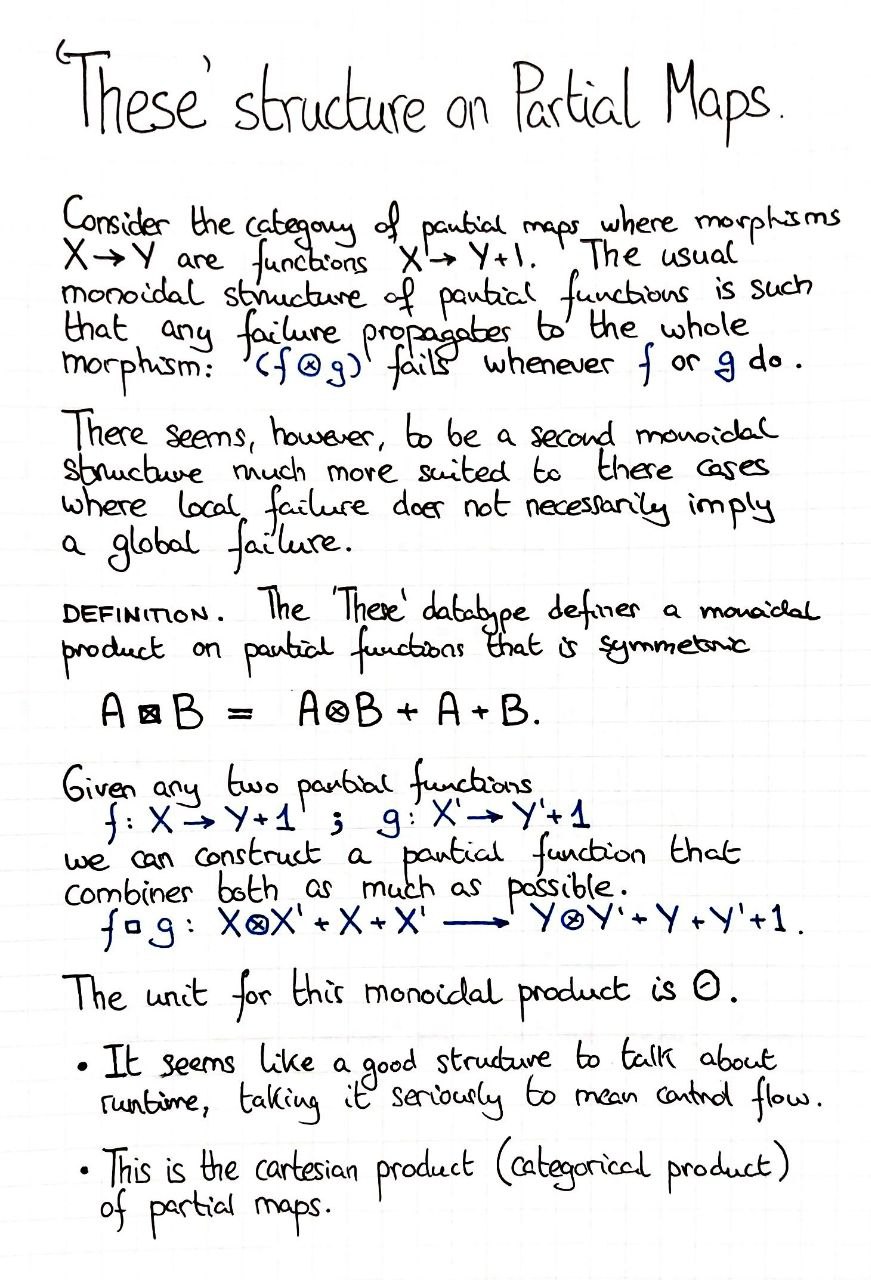 'These' structure on Partial Maps.
Consider the category of partial maps where morphisms
X → Y are functions X → Y+1. The usual
monoidal structure of partial functions is such
that any failure propagates to the whole
morphism: (f ⊗ g) fails whenever f or g do.
There seems, however, to be a second monoidal
structure much more suited to these cases
where local failure does not necessarily imply
a global failure.
DEFINITION. The 'These' datatype defines a monoidal
product on partial functions that is symmetric
A ⊠ B = A⊗B + A + B.
Given any two partial functions
f: X → Y+1 ; g: X' → Y'+1
we can construct a partial function that
combines both as much as possible.
f □ g: X⊗X' + X + X' ⟶ Y⊗Y' + Y + Y' + 1.
The unit for this monoidal product is 0.
• It seems like a good structure to talk about
runtime, taking it seriously to mean control flow.
• This is the cartesian product (categorical product)
of partial maps.